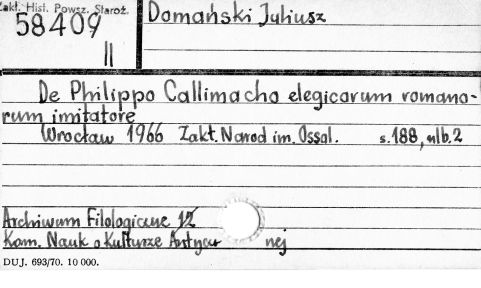 Zakł. Hist. Powsz. Staroż.
58409
II
Domański Juliusz
De Philippo Callimacho elegicorum romano-
rum imitatore
Wrocław 1966 Zakt. Narod im. Ossol. s. 188, nlb. 2
Archiwum Filologiczne 12
Kom. Nauk o Kulturze Antycz nej
DUJ. 693/70. 10 000.